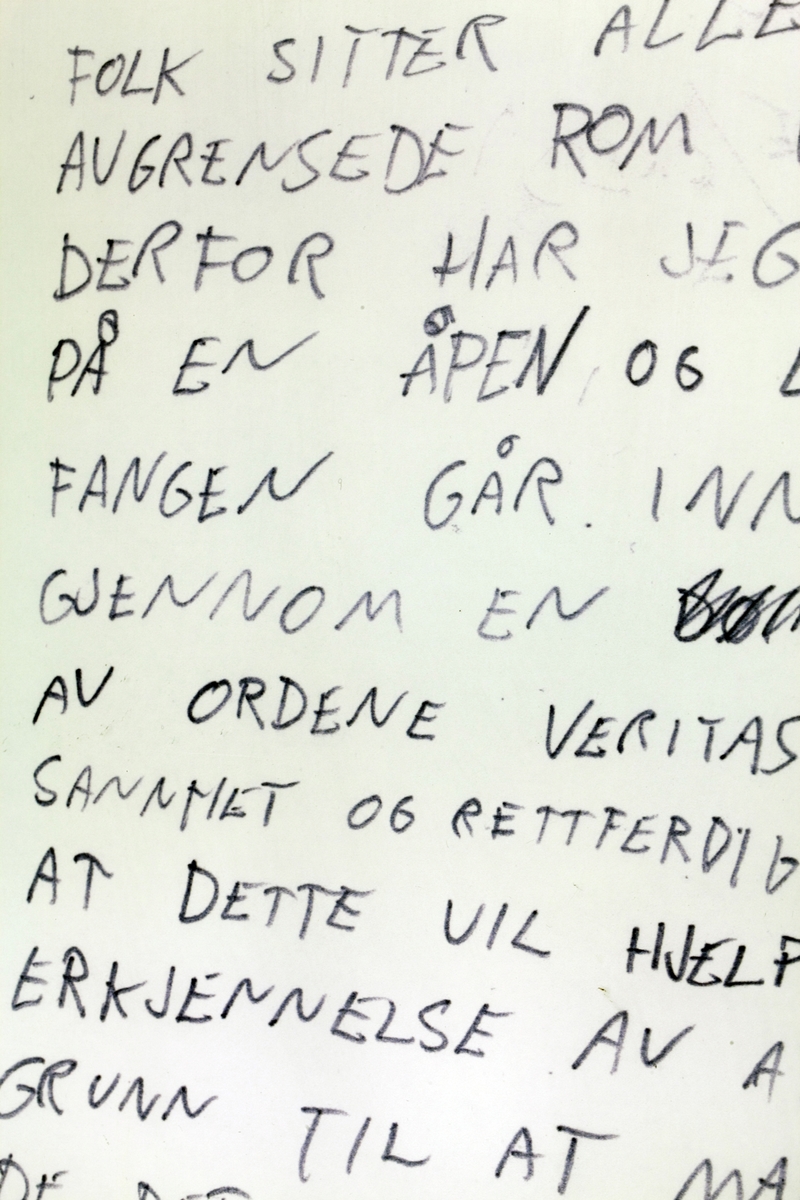 FOLK SITTER ALLE
AVGRENSEDE ROM
DERFOR HAR JEG
PÅ EN ÅPEN OG
FANGEN GÅR INN
GJENNOM EN
AV ORDENE VERITAS
SANNHET OG RETTFERDIG
AT DETTE VIL HJELP
ERKJENNELSE AV A
GRUNN TIL AT MA
DE DER